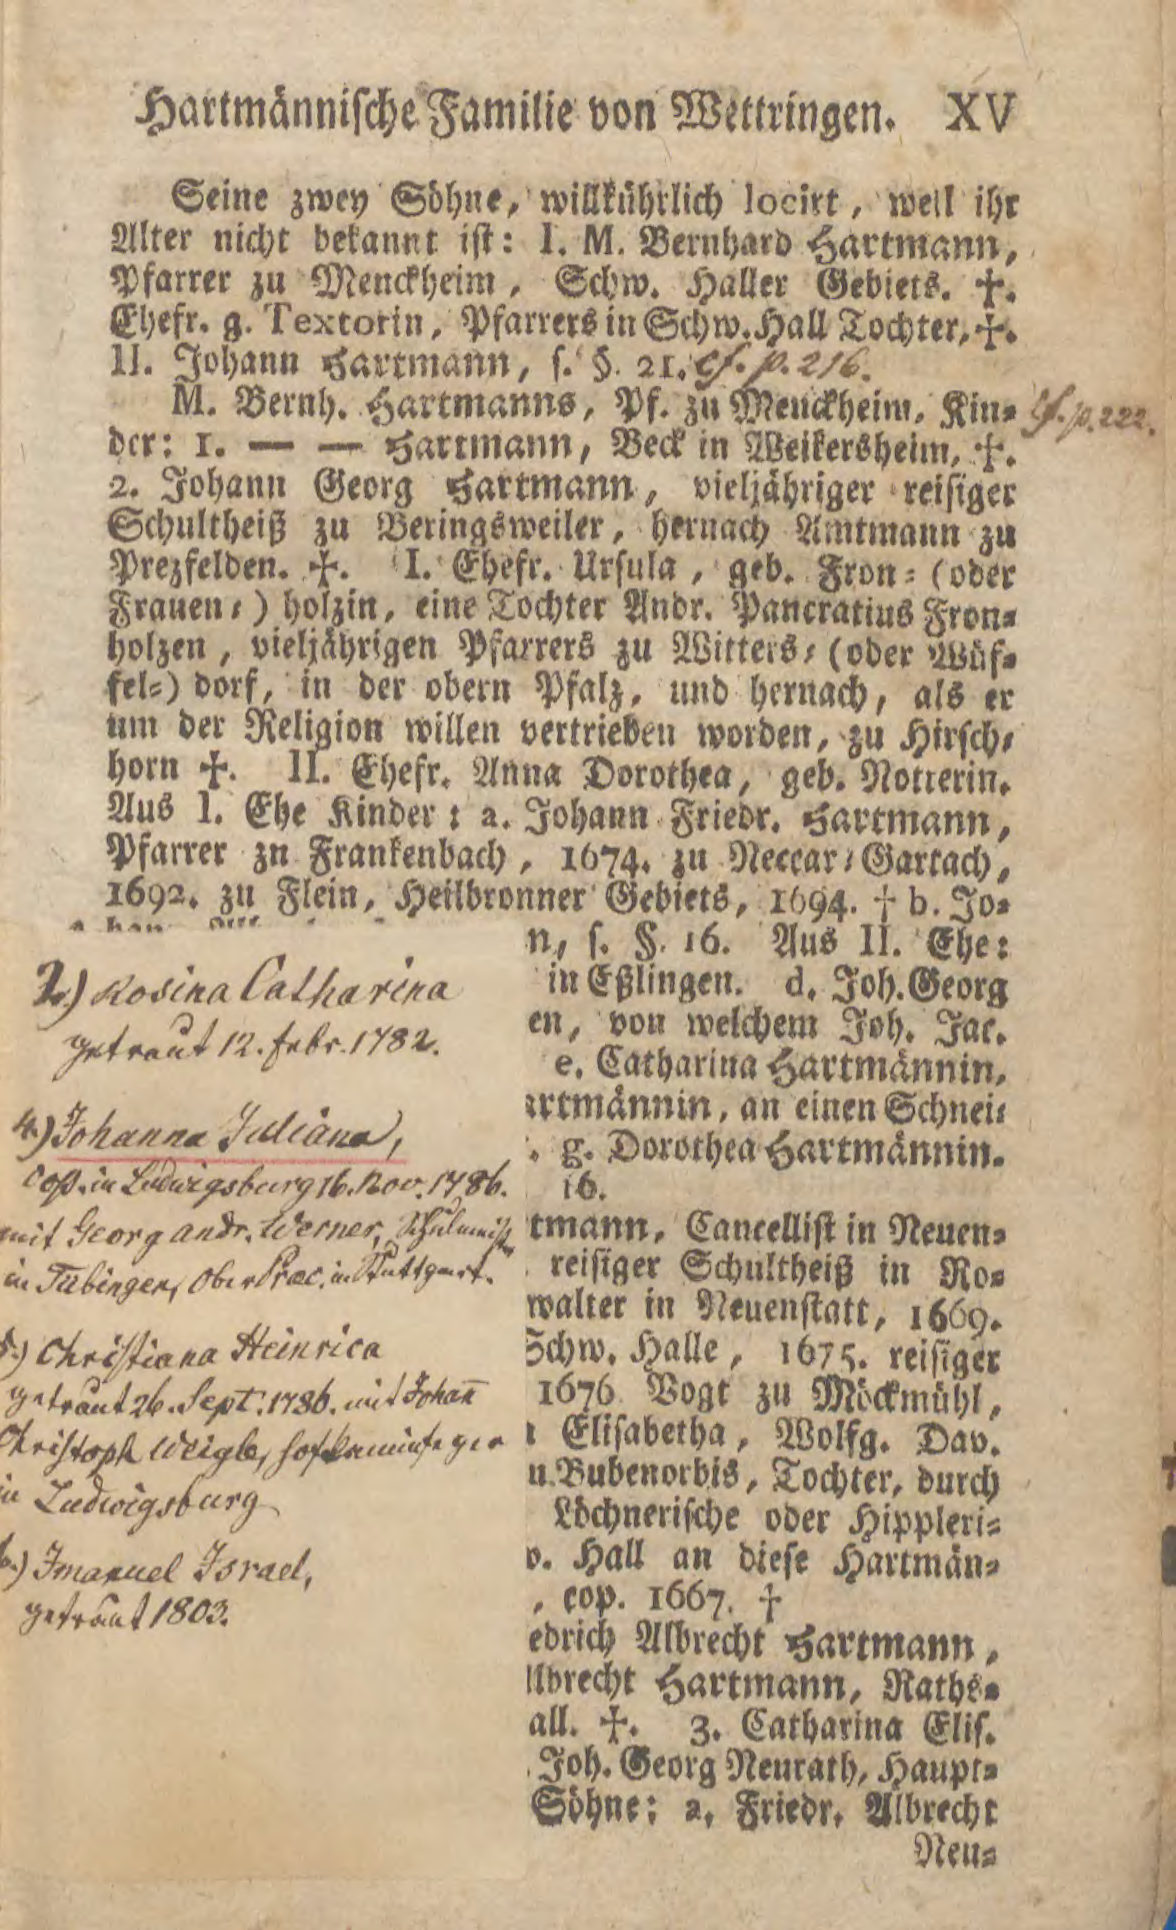 Hartmännische Familie von Wettringen. XV
Seine zwey Söhne, willkührlich locirt, weil ihr
Alter nicht bekannt ist: I. M. Bernhard Hartmann,
Pfarrer zu Menckheim, Schw. Haller Gebiets. ✝.
Ehefr. g. Textorin, Pfarrers in Schw. Hall Tochter, ✝.
II. Johann Hartmann, s. §. 21. cf. p. 216.
M. Bernh. Hartmanns, Pf. zu Menckheim, Kin-
cf. p. 222.
der: 1. — — Hartmann, Beck in Weikersheim, ✝.
2. Johann Georg Hartmann, vieljähriger reisiger
Schultheiß zu Beringsweiler, hernach Amtmann zu
Prezfelden. ✝. I. Ehefr. Ursula, geb. Fron- (oder
Frauen-) holzin, eine Tochter Andr. Pancratius Fron-
holzen, vieljährigen Pfarrers zu Witters- (oder Wüf-
fel-) dorf, in der obern Pfalz, und hernach, als er
um der Religion willen vertrieben worden, zu Hirsch-
horn ✝. II. Ehefr. Anna Dorothea, geb. Notterin.
Aus I. Ehe Kinder: a. Johann Friedr. Hartmann,
Pfarrer zn Frankenbach, 1674. zu Neccar-Gartach,
1692. zu Flein, Heilbronner Gebiets, 1694. † b. Jo-
n, s. §. 16. Aus II. Ehe:
in Eßlingen. d. Joh. Georg
en, von welchem Joh. Jac.
e. Catharina Hartmännin,
artmännin, an einen Schnei-
. g. Dorothea Hartmännin.
16.
tmann, Cancellist in Neuen-
reisiger Schultheiß in Ro-
walter in Neuenstatt, 1669.
Schw. Halle, 1675. reisiger
1676 Vogt zu Möckmühl,
Elisabetha, Wolfg. Dav.
u. Bubenorbis, Tochter, durch
Löchnerische oder Hippleri-
w. Hall an diese Hartmän-
, cop. 1667. †
edrich Albrecht Hartmann,
lbrecht Hartmann, Raths-
all. ✝. 3. Catharina Elis.
Joh. Georg Neurath, Haupt-
Söhne: a. Friedr. Albrecht
Neu-
2.) Rosina Catharina
getraut 12. febr. 1782.
4.) Johanna Juliana,
Coß. in Ludwigsburg 16. Nov. 1786.
mit Georg Andr. Werner,
in Tübingen, Ober Præc. in Stuttgart.
5.) Christiana Heinrica
getraut 26. Sept. 1786. mit Johan̄
Christoph Weigle,
in Ludwigsburg
6.) Imanuel Israel,
getraut 1803.